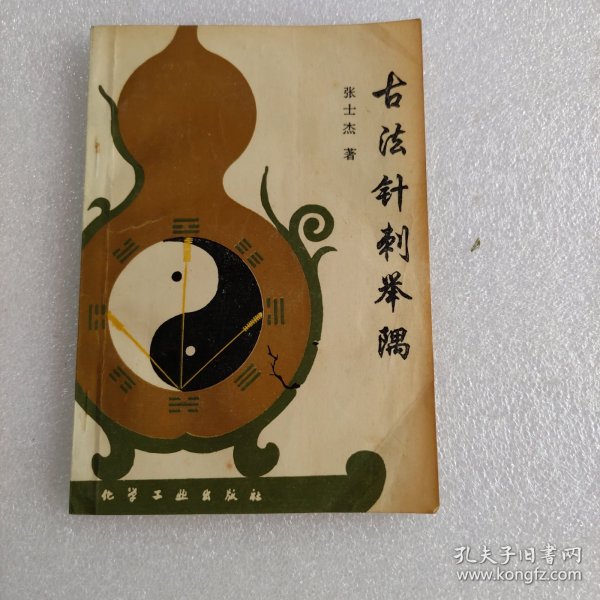 古法针刺举隅
张士杰 著
化学工业出版社
孔夫子旧书网
www.kongfz.com